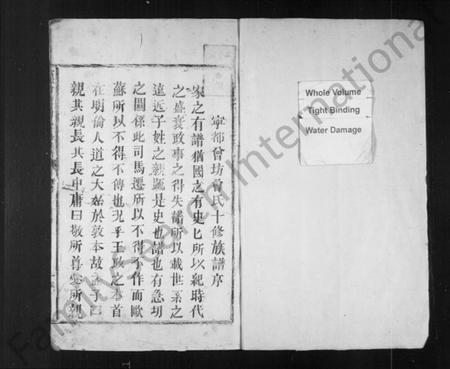 寧都曾坊曾氏十修族譜序
家之有譜猶國之有史匕所以紀時代
之盛衰政事之得失譜所以載世系之
遠近子姓之親疏是史也譜也有急切
之關係此司馬遷所以不得不作而歐
蘇所以不得不傳也况乎王政之本首
在明倫人道之大始於敦本故孟子曰
親其親長其長中庸曰敬所尊愛所親
Whole Volume
Tight Binding
Water Damage
FamilySearch International